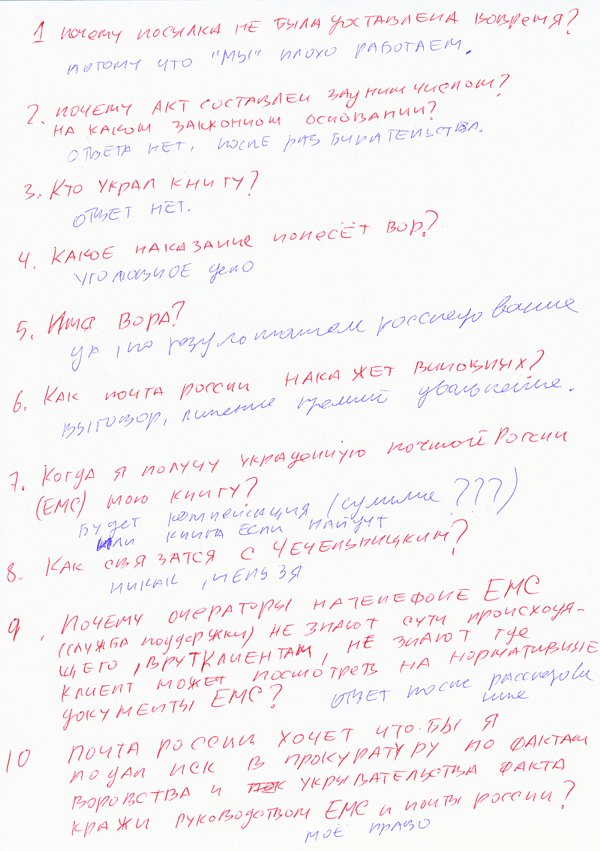 1 почему посылка не была доставлена вовремя?
потому что "мы" плохо работаем.
2. почему акт составлен задним числом?
на каком законном основании?
ответа нет, после разбирательства.
3. Кто украл книгу?
ответ нет.
4. Какое наказание понесёт вор?
уголовное дело
5. Имя вора?
да, по результатам расследование
6. Как почта россии накажет виновных?
выговор, лишение премий увольнение.
7. Когда я получу украденную почтой России
(ЕМС) мою книгу?
Будет компенсация (сумма ???)
или книга если найдут
8. Как связатся с Чечельницким?
никак, нельзя
9. Почему операторы на телефоне ЕМС
(служба поддержки) не знают сути происходя-
щего, врут клиентам, не знают где
клиент может посмотреть на нормативные
документы ЕМС?
ответ после расследова
ние
10 почта россии хочет что бы я
подал иск в прокуратуру по фактам
воровства и укрывательства факта
кражи руководством ЕМС и почты россии?
моё право